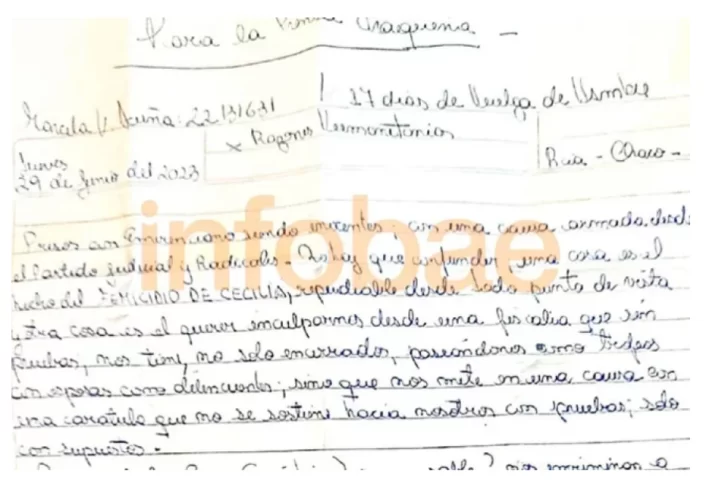 Para la Prensa Chaqueña -
Marcela V. Acuña: 22.131631
17 días de Huelga de Hambre
x Razones Humanitarias
Jueves
29 de Junio del 2023
Rcia - Chaco -
infobae
Presos Emiren cono siendo inocentes; con una causa armada desde
el Partido judicial y Radicales - No hay que confundir, una cosa es el
hecho del FEMICIDIO DE CECILIA, repudiable desde todo punto de vista
y otra cosa es el querer inculparnos desde una fiscalía que sin
pruebas, nos tiene, no solo encerrados, paseándonos como trofeos
con esposas como delincuentes; sino que nos mete en una causa con
una caratula que no se sostiene hacia nosotros con pruebas; solo
con supuestos. -
nos incriminan a